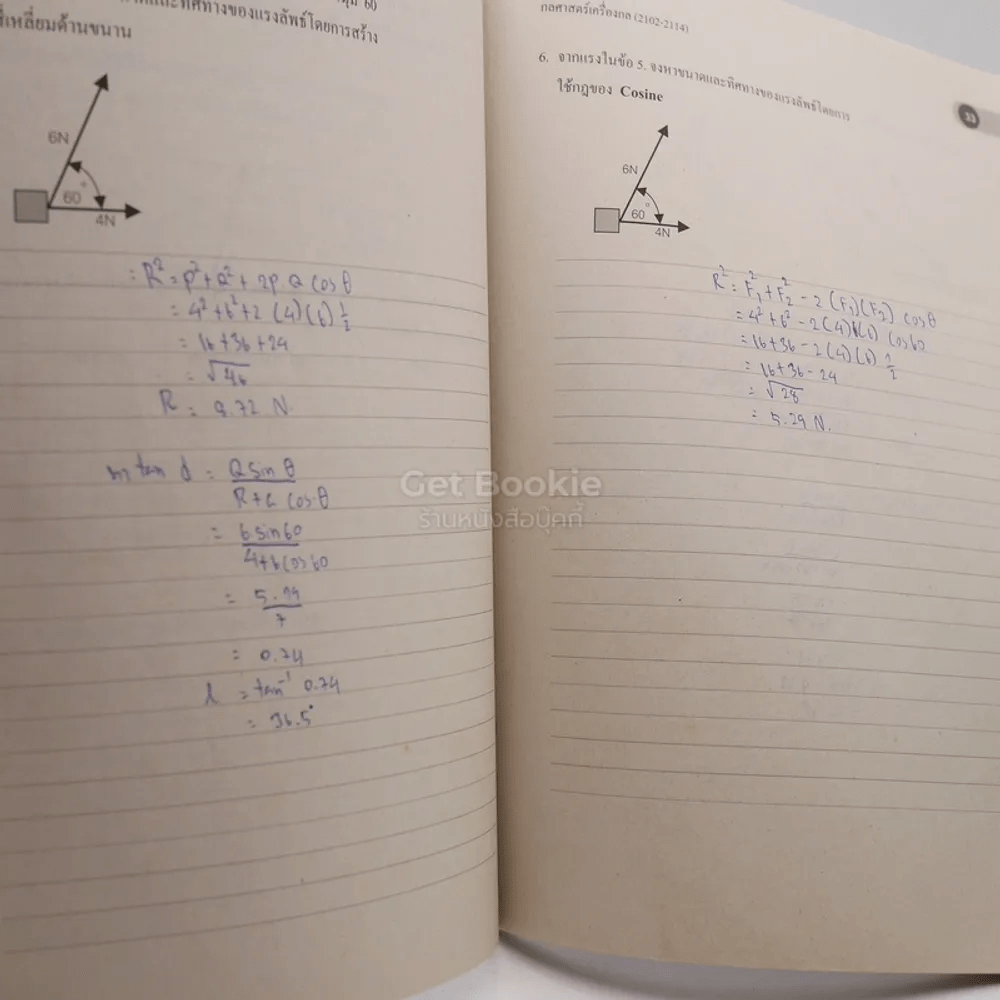 มุม 60)
และทิศทางของแรงลัพธ์โดยการสร้าง
สี่เหลี่ยมด้านขนาน
6N
60°
4N
: R² = P² + Q² + 2P Q cos θ
= 4² + 6² + 2 (4)(6) ½
= 16 + 36 + 24
= √46
R = 8.72 N.
tan d = Q sin θ
cos θ
= 6 sin 60
4 + 6 cos 60
= 5.19
7
= 0.74
d = tan⁻¹ 0.74
= 36.5°
กลศาสตร์เครื่องกล (2102-2114)
33
6. จากแรงในข้อ 5. จงหาขนาดและทิศทางของแรงลัพธ์โดยการ
ใช้กฎของ Cosine
6N
60°
4N
R² = F₁² + F₂² - 2 (F₁)(F₂) cos θ
= 4² + 6² - 2 (4)(6) cos 60
= 16 + 36 - 2 (4)(6) ½
= 16 + 36 - 24
= √28
= 5.29 N.
Get Bookie
ร้านหนังสือบุ๊คกี้